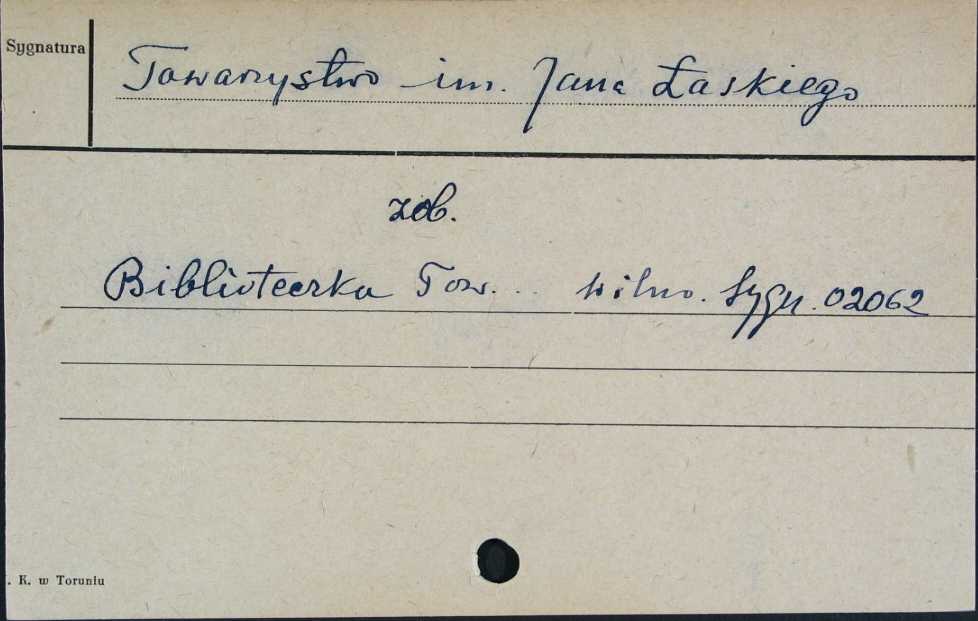 Sygnatura
Towarzystwo im. Jana Łaskiego
zob.
Biblioteczka Tow. .. Wilno. Sygn. 02062
. K. w Toruniu